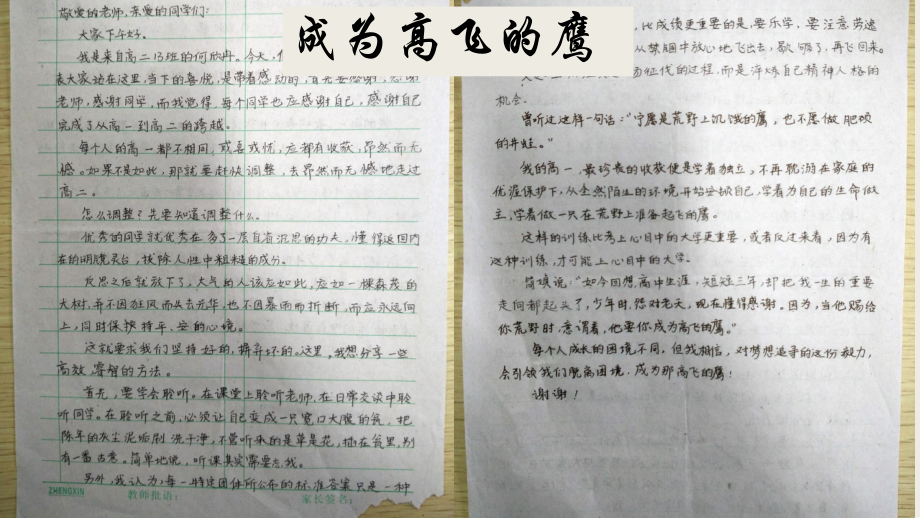 成为高飞的鹰
敬爱的老师，亲爱的同学们：
大家下午好。
我是来自高二13班的何欣冉。今天，
表大家站在这里，当下的喜悦，是带着感动的，首先要感谢，感谢
老师，感谢同学，而我觉得，每个同学也应感谢自己，感谢自己
完成了从高一到高二的跨越。
每个人的高一都不相同，或喜或忧，应都有收获，昂然而无
憾。如果不是如此，那就要赶快调整，去昂然而无憾地走过
高二。
怎么调整？先要知道调整什么。
优秀的同学就优秀在多了一层自省沉思的功夫，懂得返回内
在的明镜灵台，抹除人性中粗糙的成分。
反思之后就放下了，大气的人该应如此，应如一棵森茂的
大树，并不因狂风而失去光华，也不因暴雨而折断，而应永远向
上，同时保护持平、安的心境。
这就要求我们坚持好的，摒弃坏的。这里，我想分享一些
高效、睿智的方法。
首先，要学会聆听。在课堂上聆听老师，在日常交谈中聆
听同学。在聆听之前，必须让自己变成一只宽口大腹的瓮，把
陈年的灰尘泥垢刷洗干净，不管听来的是草是花，插在瓮里，别
有一番古意。简单地说，听课其实需要忘我。
另外，我认为，每一特定团体所公布的标准答案只是一种
ZHENGXIN 教师批语： 家长签名：
比成绩更重要的是，要乐学，要注意劳逸
从禁锢中放心地飞出去，歇够了，再飞回来。
征伐的过程，而是淬炼自己精神人格的
机会。
曾听过这样一句话：“宁愿是荒野上饥饿的鹰，也不愿做肥硕
的井蛙。”
我的高一，最珍贵的收获便是学着独立，不再耽溺在家庭的
优渥保护下，从全然陌生的环境开始安抚自己，学着为自己的生命做
主，学着做一只在荒野上准备起飞的鹰。
这样的训练比考上心目中的大学更重要，或者反过来看，因为有
这种训练，才可能上心目中的大学。
简媜说：“如今回想高中生涯，短短三年，却把我一生的重要
走向都起头了，少年时，怨对老天，现在懂得感谢。因为，当他赐给
你荒野时，意谓着，他要你成为高飞的鹰。”
每个人成长的困境不同，但我相信，对梦想追寻的这份毅力，
会引领我们脱离困境，成为那高飞的鹰！
谢谢！